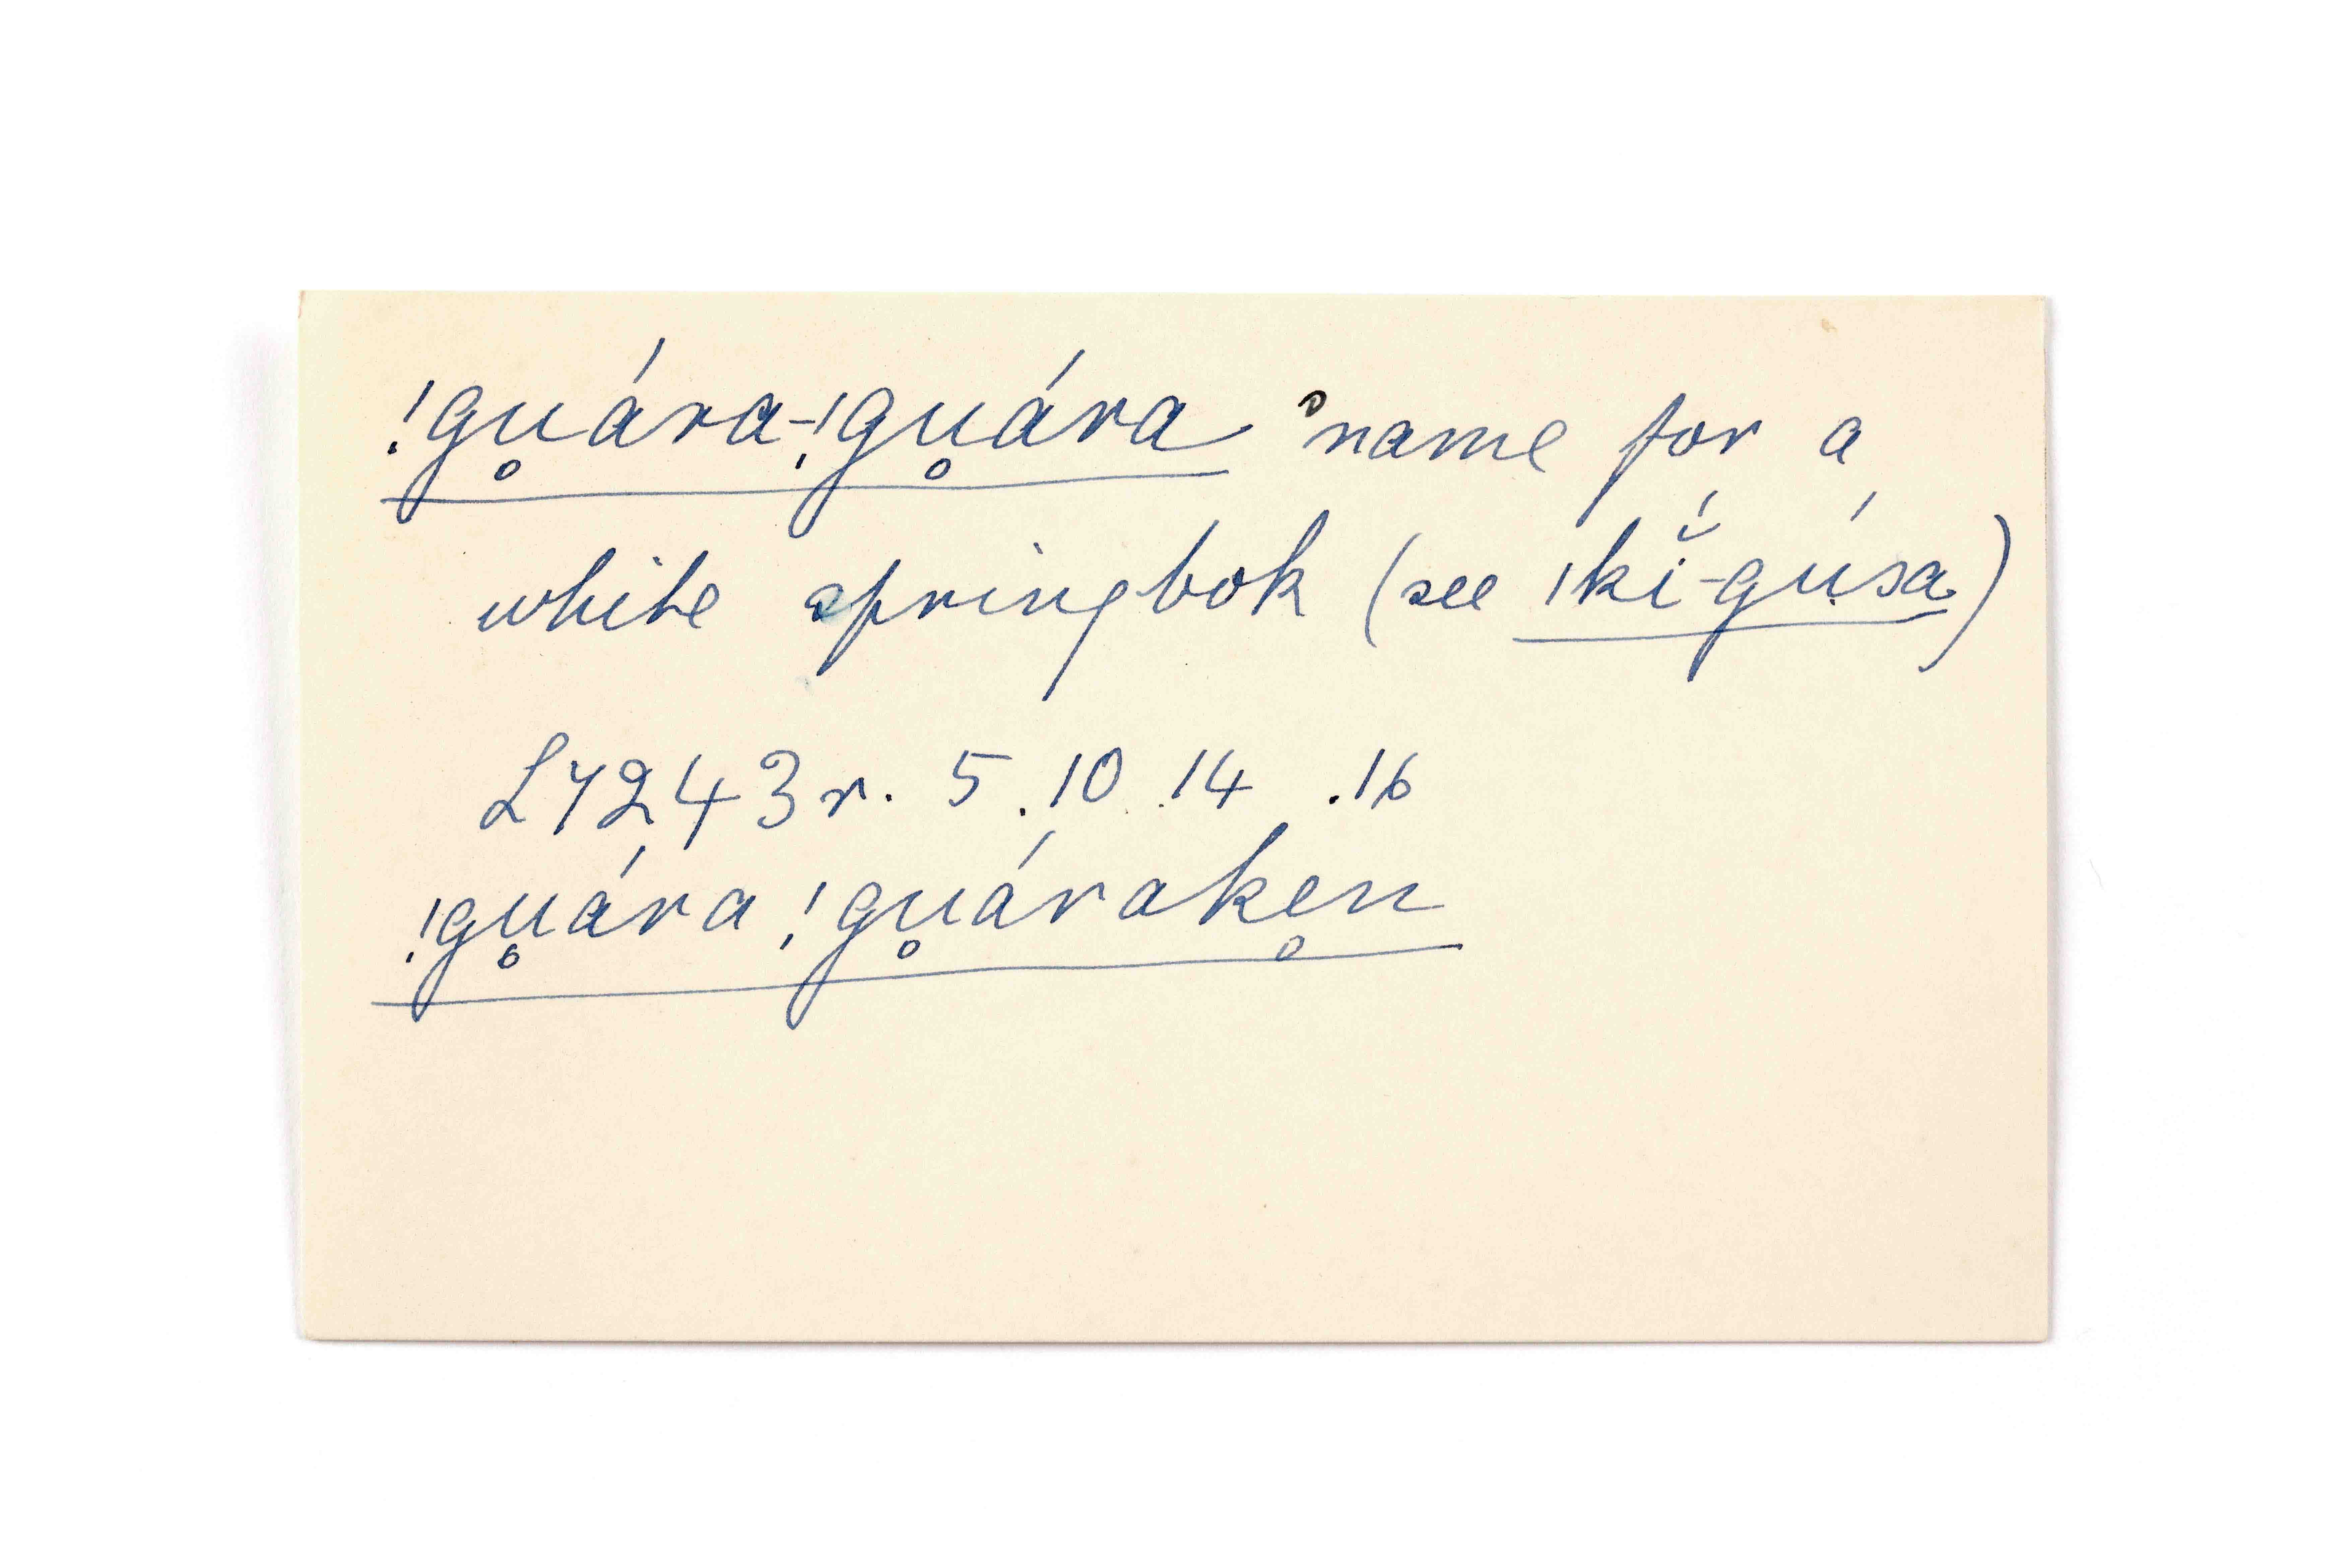 !gu̥ára-!gu̥ára °name for a
white springbok (see ǀkı̆́-gúsa)
L7243r. 5.10.14 .16
!gu̥ára !gu̥árake̥n